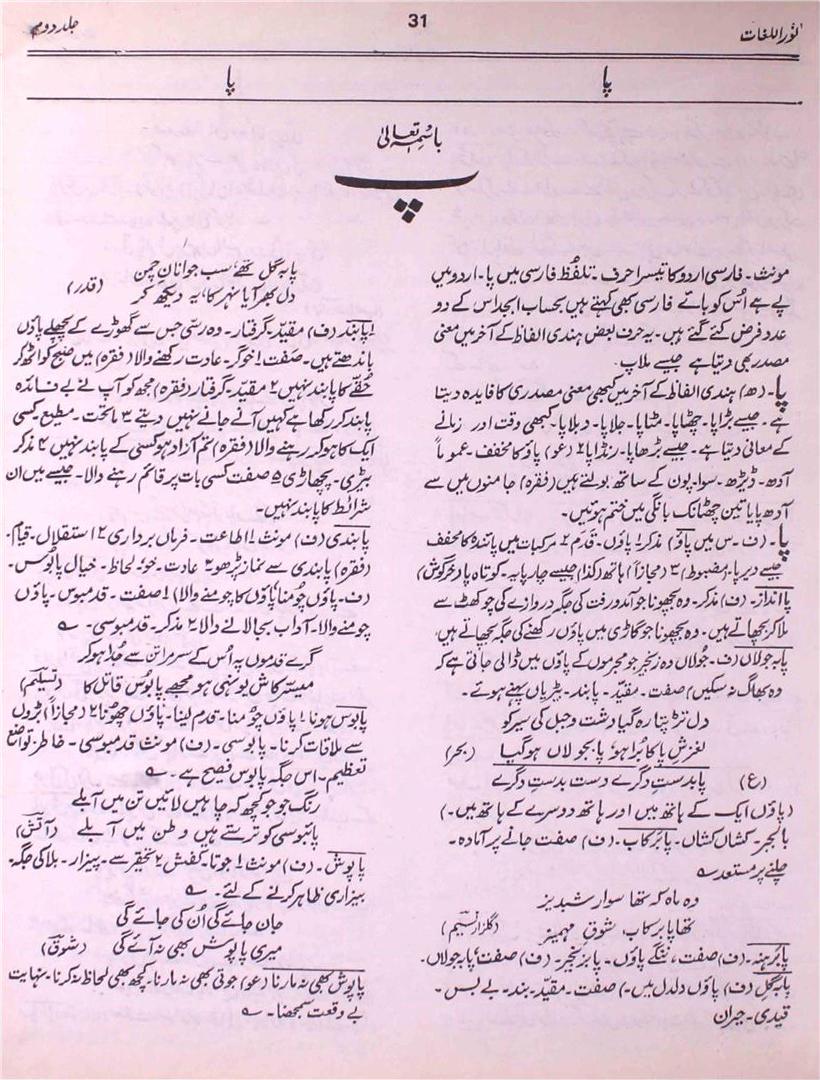 نوراللغات
31
جلد دوم
پا
پا
باسمہ تعالیٰ
پ
مونث۔ فارسی اردو کا تیسرا حرف۔ تلفظ فارسی میں پا۔ اردو میں
پے ہے اُس کو بائے فارسی بھی کہتے ہیں بحساب ابجد اس کے دو
عدد فرض کئے گئے ہیں۔ یہ حرف بعض ہندی الفاظ کے آخر میں معنی
مصدر بھی دیتا ہے جیسے ملاپ۔
پا۔ (ھ) ہندی الفاظ کے آخر میں کبھی معنی مصدری کا فایدہ دیتا
ہے۔ جیسے بڑاپا۔ چھٹاپا۔ مٹاپا۔ جلاپا۔ دبلاپا۔ کبھی وقت اور زمانے
کے معانی دیتا ہے۔ جیسے بڑھاپا۔ رنڈاپا ۲ (عو) پاؤ کا مخفف۔ عموماً
آدھ۔ ڈیڑھ۔ سوا۔ پون کے ساتھ بولتے ہیں (فقرہ) جامنوں میں سے
آدھ پا یا تین چھٹانک بانگی میں ختم ہوتیں۔
پا۔ (ف۔ س میں پاؤ) مذکر ۱ پاؤں۔ قدم ۲ مرکبات میں پائندہ کا مخفف
جیسے دیرپا۔ (مضبوط) ۳ (مجازاً) ہاتھ (کذا) جیسے چارپایہ۔ کوتاہ پا (خرگوش)
پاانداز۔ (ف) مذکر۔ وہ بچھونا جو آمدورفت کی جگہ دروازے کی چوکھٹ سے
ملا کر بچھاتے ہیں۔ وہ بچھونا جو گاڑی میں پاؤں رکھنے کی جگہ بچھاتے ہیں
پابہ جولاں (ف۔ جولاں وہ زنجیر جو مجرموں کے پاؤں میں ڈالی جاتی ہے کہ
وہ بھاگ نہ سکیں) صفت۔ مقیّد۔ پابند۔ بیڑیاں پہنے ہوئے۔
دل تڑپتا رہ گیا دشت و جبل کی سیر کو
لغزشِ پا کا بُرا ہو، پابجولاں ہو گیا (بحر)
(ع) پا بدستِ دگرے دست بدستِ دگرے
(پاؤں ایک کے ہاتھ میں اور ہاتھ دوسرے کے ہاتھ میں۔)
بالجبر۔ کشاں کشاں۔ پابرکاب۔ (ف) صفت جانے پر آمادہ۔
چلنے پر مستعد ؎
وہ ماہ کہ تھا سوار شبدیز
تھا پابرکاب، شوق مہمیز (گلزار نسیم)
پابرہنہ۔ (ف) صفت، ننگے پاؤں۔ پابزنجیر۔ (ف) صفت، پابہ جولاں۔
پابگل (ف) پاؤں دلدل میں۔) صفت۔ مقیّد۔ بند۔ بے بس۔
قیدی۔ حیران
پابہ گل تھے سب جوانانِ چمن
دل بھر آیا نہر کا یہ دیکھ کر (قدر)
پابند (ف) مقیّد۔ گرفتار۔ وہ رسّی جس سے گھوڑے کے پچھلے پاؤں
باندھتے ہیں۔ صفت ۱ خوگر۔ عادت رکھنے والا (فقرہ) میں صبح کو اٹھ کر
حقّے کا پابند نہیں ۲ مقیّد۔ گرفتار (فقرہ) مجھ کو آپ نے بے فائدہ
پابند کر رکھا ہے کہیں آنے جانے نہیں دیتے ۳ ماتحت۔ مطیع۔ کسی
ایک کا ہو کر رہنے والا (فقرہ) تم آزاد ہو کسی کے پابند نہیں ۴ مذکر
بیڑی۔ پچھاڑی ۵ صفت کسی بات پر قائم رہنے والا۔ جیسے میں ان
شرائط کا پابند نہیں۔
پابندی (ف) مونث ۱ اطاعت۔ فرماں برداری ۲ استقلال۔ قیام۔
(فقرہ) پابندی سے نماز پڑھو ۳ عادت۔ خو ۴ لحاظ۔ خیال پابوس۔
(ف۔ پاؤں چومنا، پاؤں کا چومنے والا) ۱ صفت۔ قدمبوس۔ پاؤں
چومنے والا۔ آداب بجا لانے والا ۲ مذکر۔ قدمبوسی۔ ؎
گرے قدموں پہ اُس کے سر مرا تن سے جُدا ہو کر
میسّر کاش یونہی ہو مجھے پابوس قاتل کا (تسلیم)
پابوس ہونا ۱ پاؤں چومنا۔ قدم لینا۔ پاؤں چھونا ۲ (مجازاً) بڑوں
سے ملاقات کرنا۔ پابوسی۔ (ف) مونث قدمبوسی۔ خاطر تواضع
تعظیم۔ اس جگہ پابوس فصیح ہے۔ ؎
رنگ جو جو کچھ کہ چاہیں لائیں تن میں آبلے
پابوسی کو ترستے ہیں وطن میں آبلے (آتش)
پاپوش۔ (ف) مونث ۱ جوتا۔ کفش ۲ تحقیر سے۔ پیزار۔ بلا کی جگہ۔
بیزاری ظاہر کرنے کے لئے۔ ؎
جان جائے گی اُن کی جائے گی
میری پاپوش بھی نہ آئے گی (شوق)
پاپوش بھی نہ مارنا (عو) جوتی بھی نہ مارنا۔ کچھ بھی لحاظ نہ کرنا۔ نہایت
بے وقعت سمجھنا۔ ؎